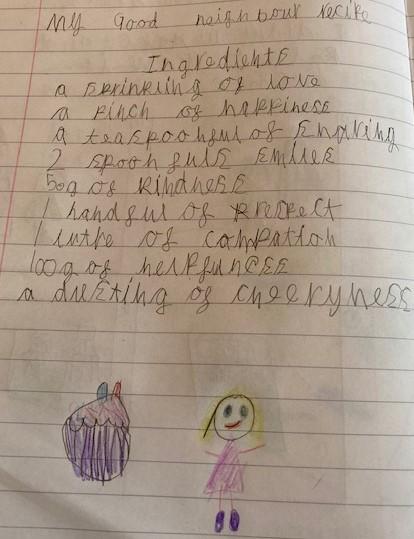 My Good neighbour recipe
Ingredients
a sprinkling of love
a pinch of happiness
a teaspoonful of sharing
2 spoonfuls smiles
50g of kindness
1 handful of respect
1 of
100g of helpfuness
a dusting of cheeryness